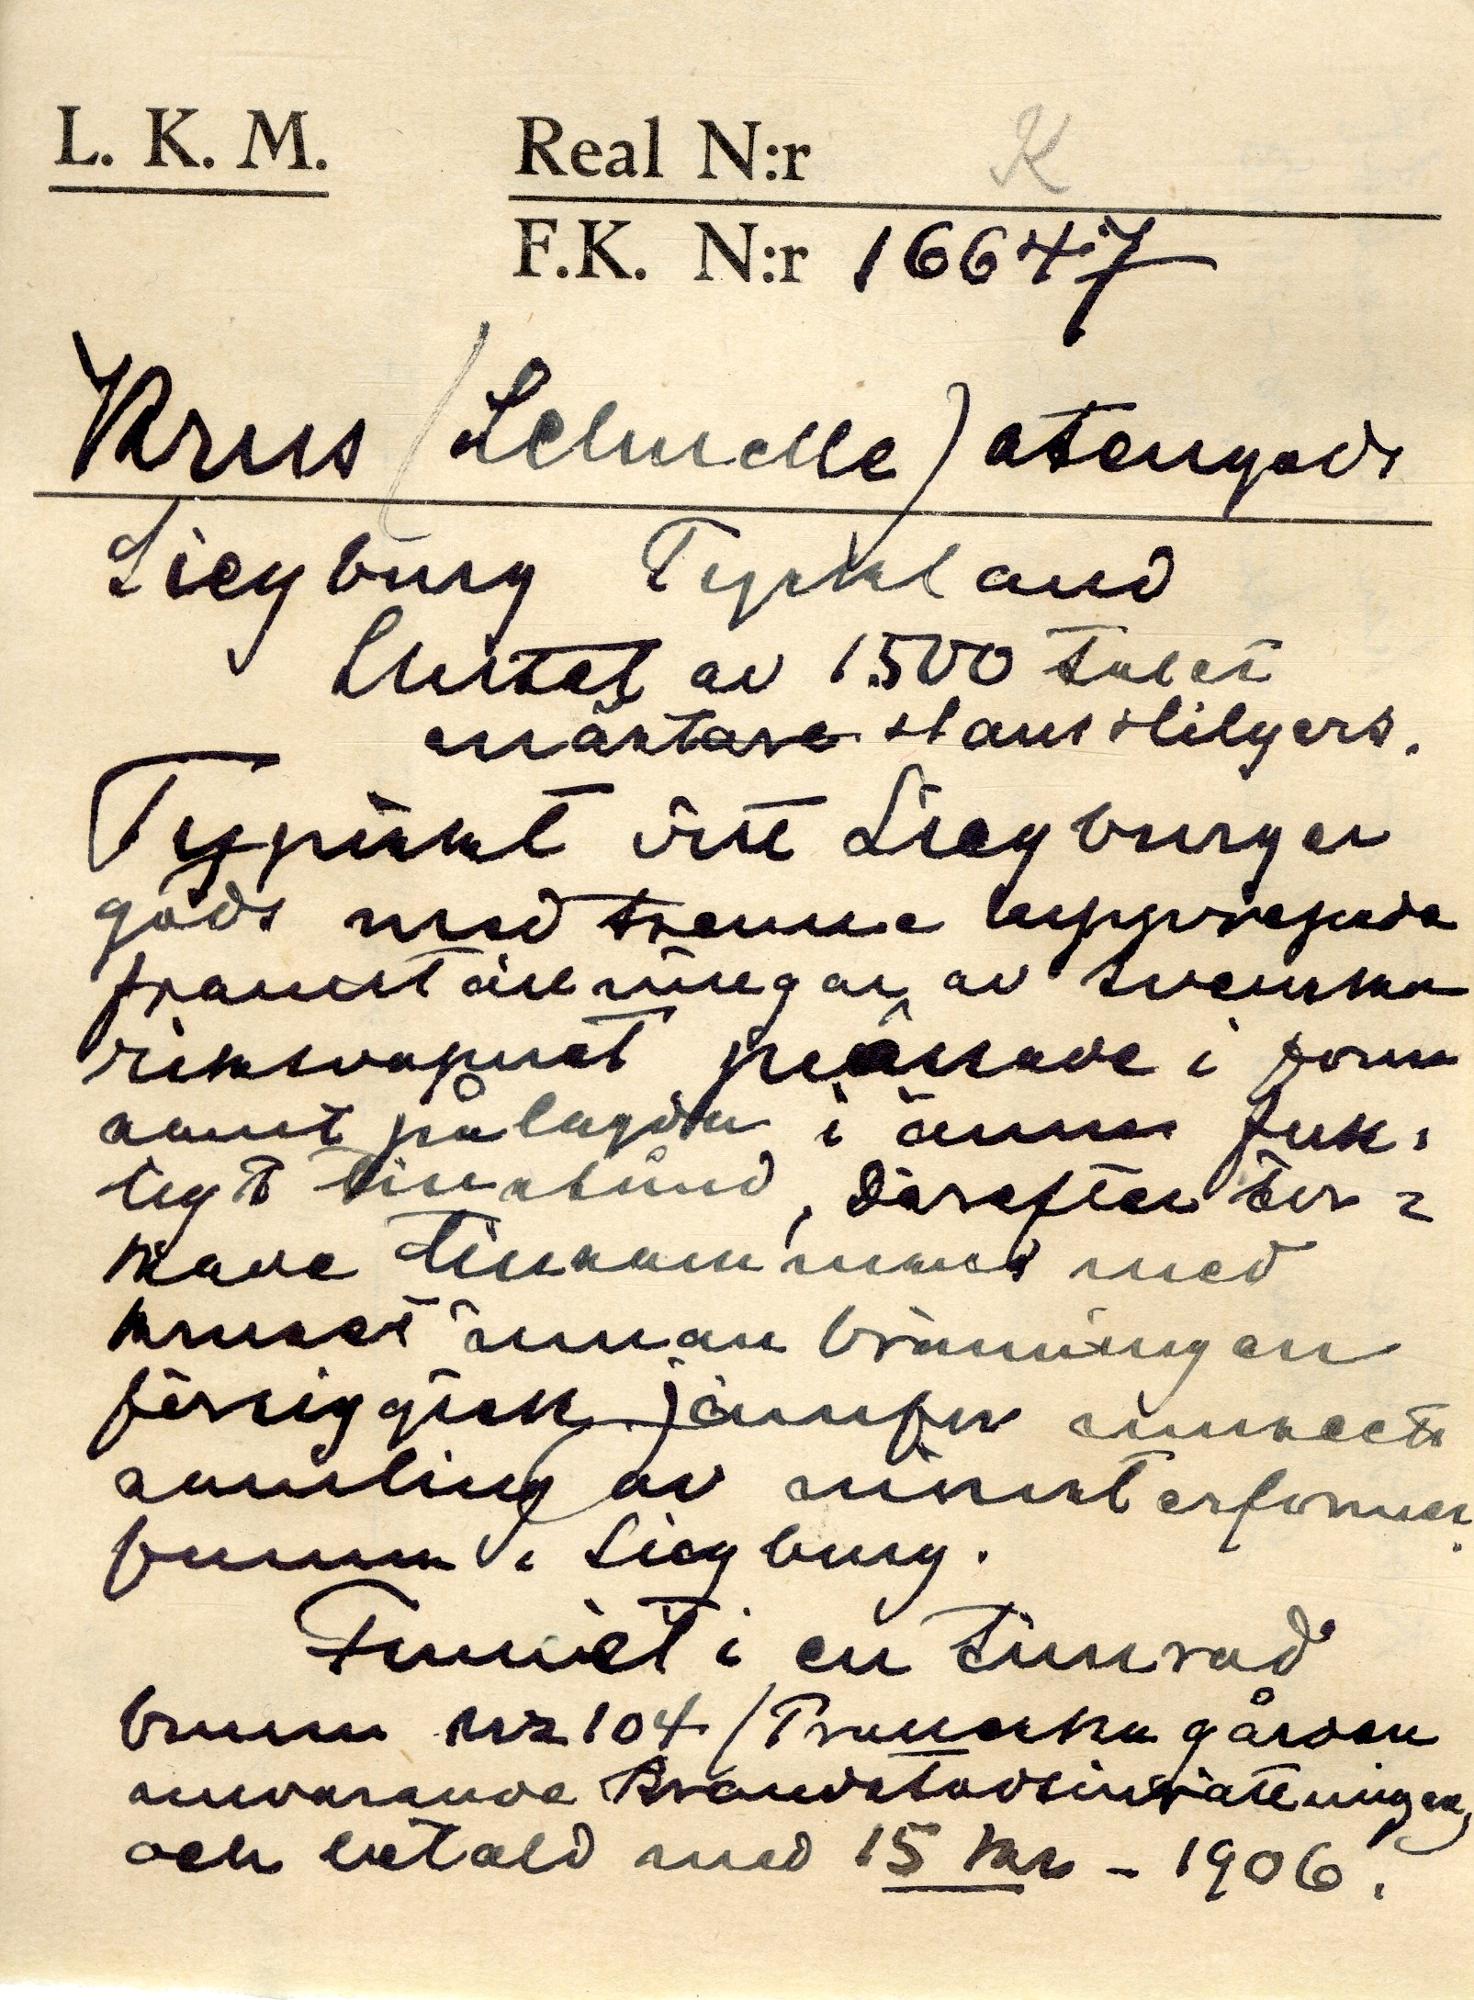 L. K. M. Real N:r K
F.K. N:r 16647
Krus (Schnelle) stengods
Siegburg Tyskland
Slutet av 1500 talet
mästare Hans Hilgers.
Typiskt ött Siegburger
gods med trenne upprepade
framställningar av svenska
riksvapnet pressade i form
samt pålagda i ännu fuk-
tigt tillstånd, därefter tor-
kade tillsammans med
kruset innan bränningen
försiggick. jämför museets
samling av mönsterformer
funna i Siegburg.
Funnet i en timrad
brunn nr 104 / Tranerska gården
nuvarande Brandstodsinrättningen,
och betald med 15 kr - 1906.